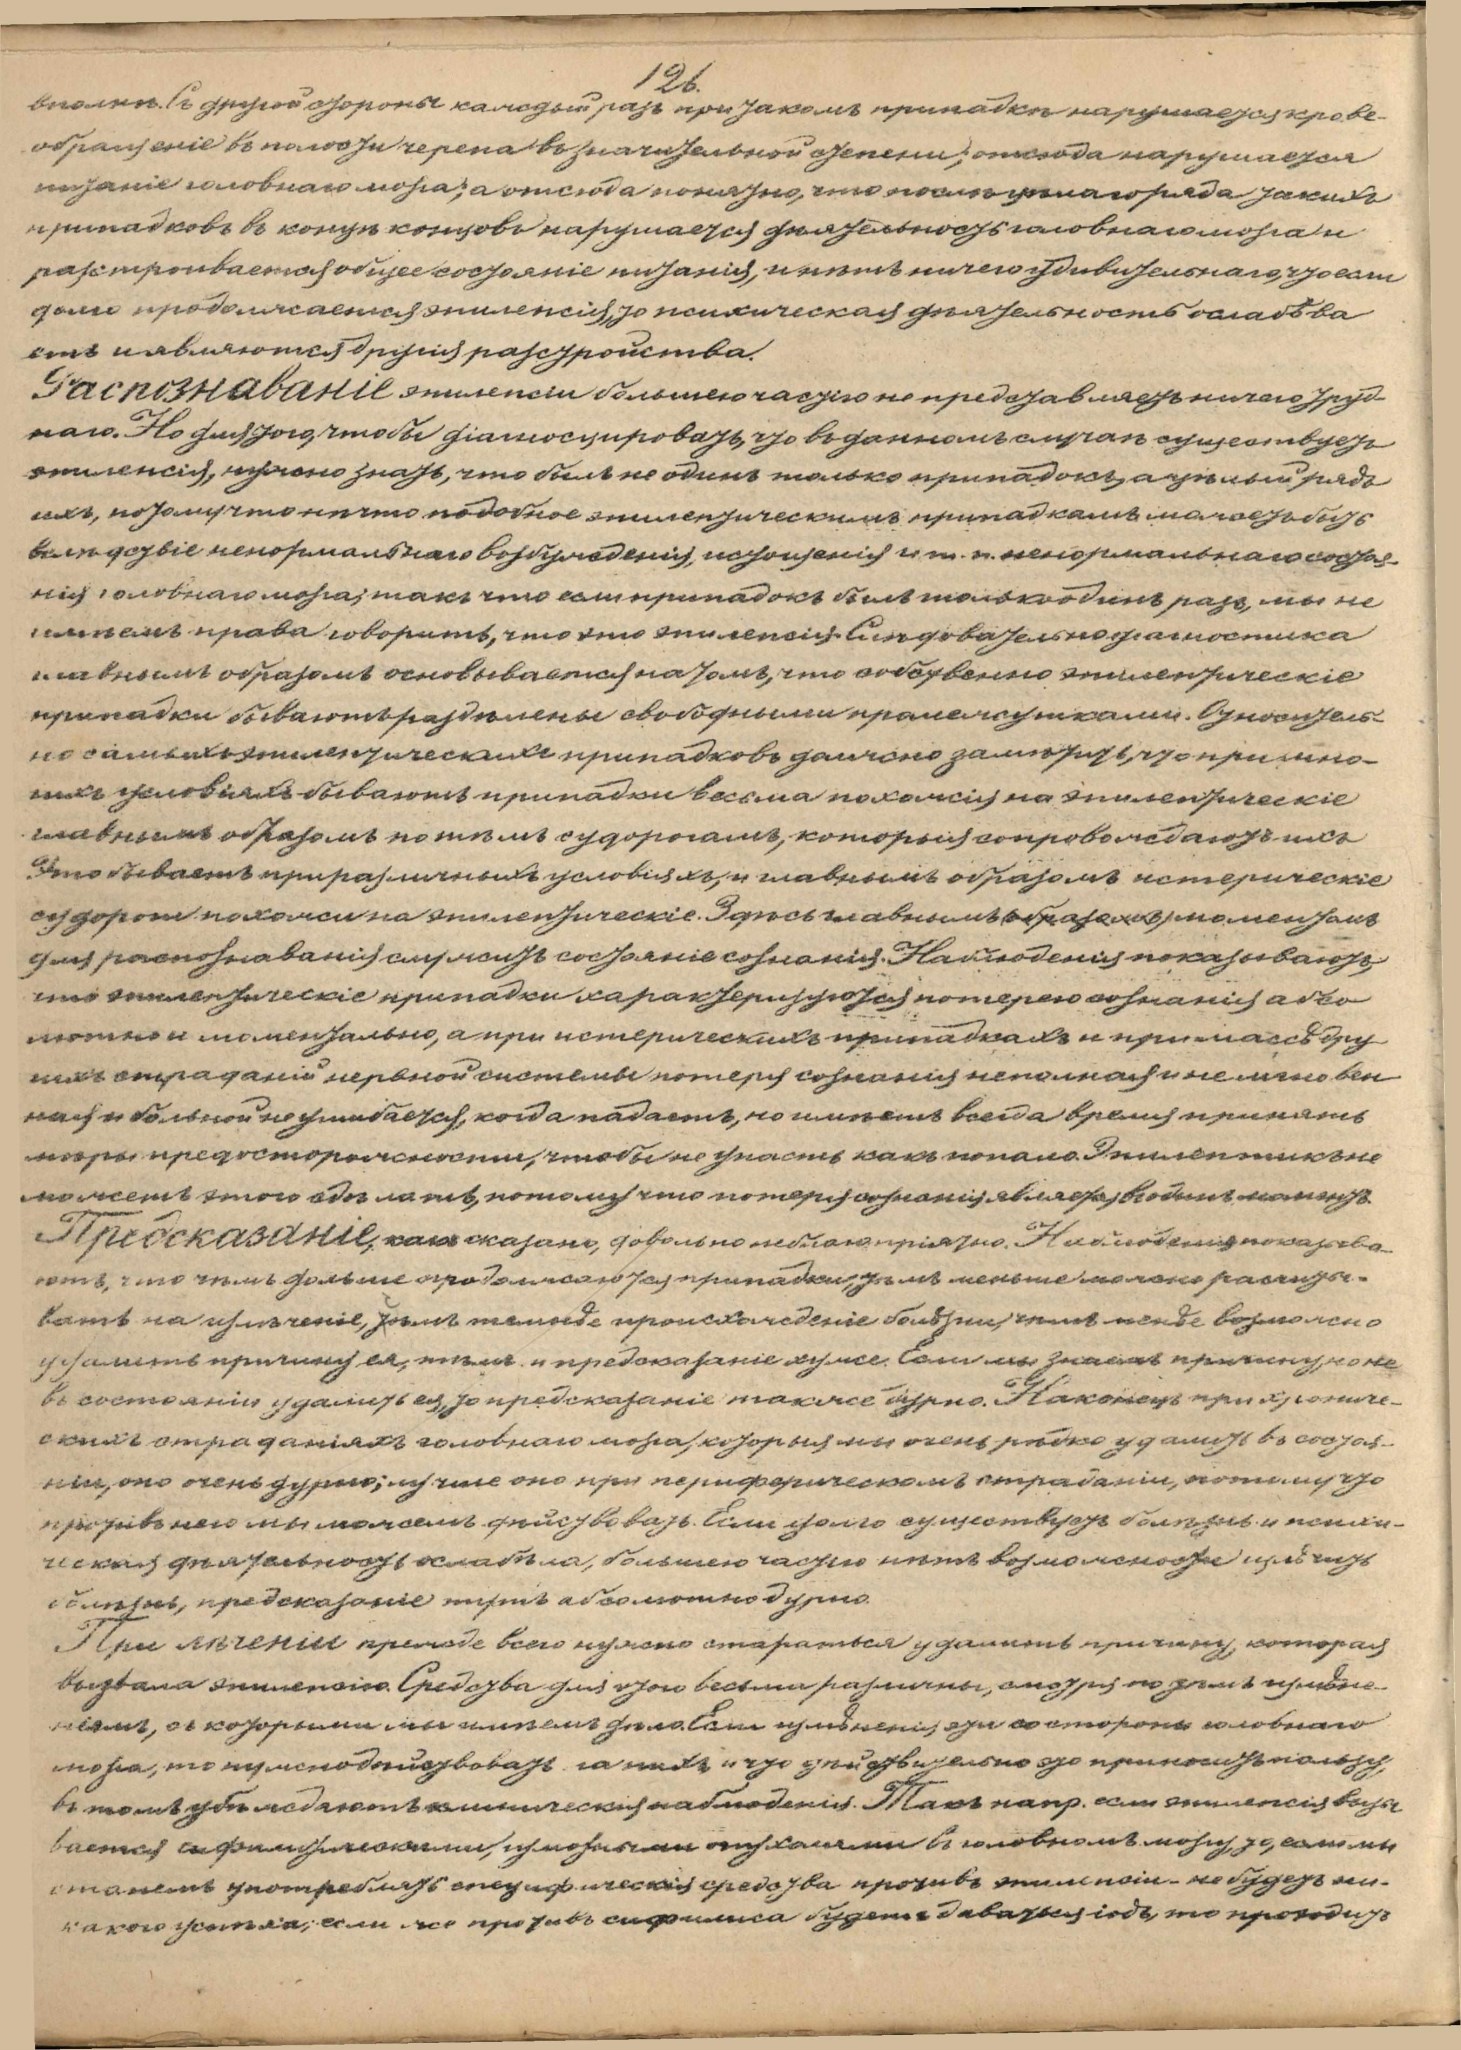 126.
вполнѣ. Съ другой стороны каждый разъ при такомъ припадкѣ нарушается крове-
обращеніе въ полости черепа въ значительной степени; отсюда нарушается
питаніе головнаго мозга; а отсюда понятно, что послѣ цѣлаго ряда такихъ
припадковъ въ концѣ концовъ нарушается дѣятельность головнаго мозга и
разстроивается общее состояніе питанія, и нѣтъ ничего удивительнаго, что если
долго продолжается эпилепсія, то психическая дѣятельность ослабѣва
етъ и являются другія разстройства.
Распознаваніе эпилепсіи большею частію не представляетъ ничего труд-
наго. Но для того, чтобы діагносцировать, что въ данномъ случаѣ существуетъ
эпилепсія, нужно знать, что былъ не одинъ только припадокъ, а цѣлый рядъ
ихъ, потому что нѣчто подобное эпилептическимъ припадкамъ можетъ быть
вслѣдствіе ненормальнаго возбужденія, истощенія и т. п. ненормальнаго состоя-
нія головнаго мозга; такъ что если припадокъ былъ только одинъ разъ, мы не
имѣемъ права говорить, что это эпилепсія. Слѣдовательно діагностика
главнымъ образомъ основывается на томъ, что собственно эпилептическіе
припадки бываютъ раздѣлены свободными промежутками. Относитель-
но самыхъ эпилептическихъ припадковъ должно замѣтить, что при мно-
гихъ условіяхъ бываютъ припадки весьма похожія на эпилептическіе
главнымъ образомъ по тѣмъ судорогамъ, которыя сопровождаютъ ихъ
Это бываетъ при различныхъ условіяхъ, и главнымъ образомъ истерическіе
судороги похожи на эпилептическіе. Здѣсь главнымъ (образомъ) моментомъ
для распознаванія служитъ состояніе сознанія. Наблюденія показываютъ,
что эпилептическіе припадки характеризуются потерею сознанія абсо
лютно и моментально, а при истерическихъ припадкахъ и при массѣ дру
гихъ страданій нервной системы потеря сознанія неполная и не мгновен
ная и больной не ушибается, когда падаетъ, но имѣетъ всегда время принять
мѣры предосторожности, чтобы не упасть какъ попало. Эпилептикъ не
можетъ этого сдѣлать, потому что потеря сознанія является въ одинъ моментъ.
Предсказаніе, какъ сказано, довольно неблагопріятно. Наблюденія показыва-
ютъ, что чѣмъ дольше продолжаются припадки, тѣмъ меньше можно расчиты-
вать на излѣченіе, чѣмъ темнѣе происхожденіе болѣзни, чѣмъ менѣе возможно
удалить причину ея, тѣмъ и предсказаніе хуже. Если мы знаемъ причину, но не
въ состояніи удалить ея, то предсказаніе также дурно. Наконецъ при хрониче-
скихъ страданіяхъ головнаго мозга, которыя мы очень рѣдко удалить въ состоя-
ніи, оно очень дурно; лучше оно при периферическомъ страданіи, потому что
противъ него мы можемъ дѣйствовать. Если долго существуетъ болѣзнь и психи-
ческая дѣятельность ослабѣла, большею частью нѣтъ возможности излѣчить
болѣзнь, предсказаніе тутъ абсолютно дурно.
При лѣченіи прежде всего нужно стараться удалить причину, которая
вызвала эпилепсію. Средства для этого весьма различны, смотря по тѣмъ измѣне-
ніямъ, съ которыми мы имѣемъ дѣло. Если измѣненія эти со стороны головнаго
мозга, то нужно дѣйствовать на нихъ и что дѣйствительно это приноситъ пользу,
въ томъ убѣждаютъ клиническія наблюденія. Такъ напр. если эпилепсія вызы
вается сифилитическими, опухолями въ головномъ мозгу, то, если мы
станемъ употреблять специфическія средства противъ эпилепсіи - не будетъ ни-
какого успѣха; если же противъ сифилиса будетъ даваться іодъ, то проходитъ